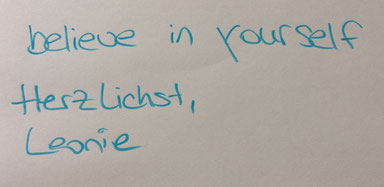 believe in yourself
Herzlichst,
Leonie